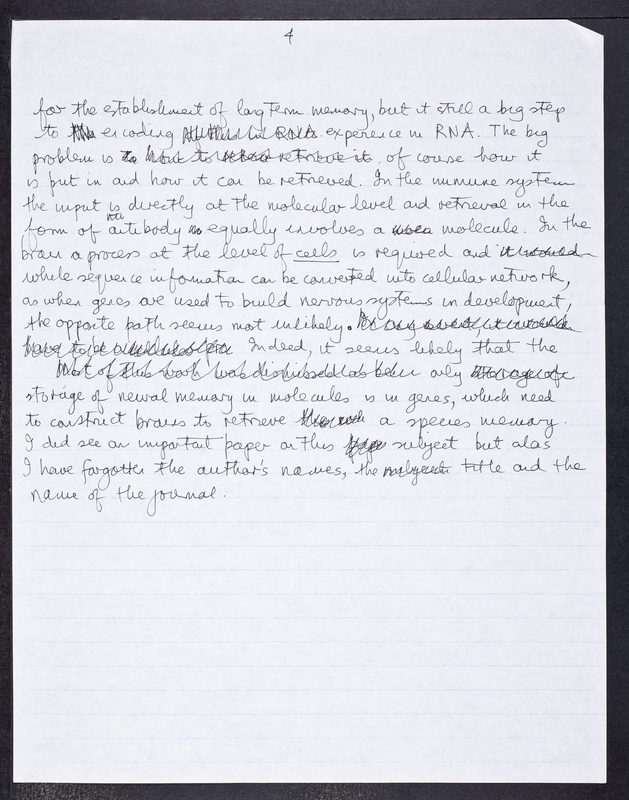 4
for the establishment of long term memory, but it still a big step
to encoding experience in RNA. The big
problem is of course how it
is put in and how it can be retrieved. In the immune system
the input is directly at the molecular level and retrieval in the
form of antibody equally involves a molecule. In the
brain a process at the level of cells is required and
while sequence information can be converted into cellular network,
as when genes are used to build nervous systems in development,
the opposite path seems most unlikely.
Indeed, it seems likely that the
Most of this work was dismissed as been only
storage of neural memory in molecules is in genes, which need
to construct brains to retrieve a species memory.
I did see an important paper on this subject but alas
I have forgotten the author's names, the title and the
name of the journal.